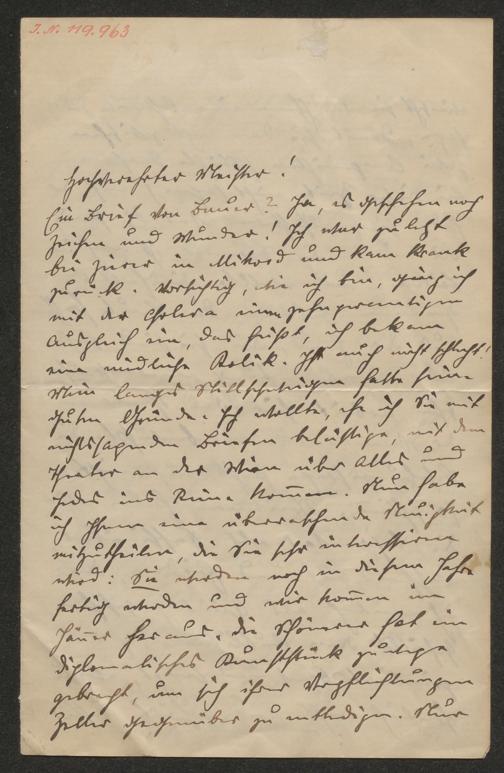 J.N. 119.963
Hochverehrter Meister!
Ein Brief von Bauer? Ja, es geschehen noch
Zeichen und Wunder! Ich war zuletzt
bei in und kam krank
zurück. Vorsichtig, wie ich bin, ging ich
mit der Cholera einen zehnprozentigen
Ausgleich ein, das heißt, ich bekam
eine niedliche Kolik. Ist auch nicht schlecht!
Mein langes Stillschweigen hatte seine
guten Gründe. Ich wollte, ehe ich Sie mit
nichtssagenden Briefen belästige, mit dem
Theater an der Wien über Alles und
Jedes ins Reine kommen. Nun habe
ich Ihnen eine überraschende Neuigkeit
mitzutheilen, die Sie sehr interessiren
wird: Sie werden noch in diesem Jahre
fertig werden und wir kommen im
Jänner heraus. Die Schönerer hat ein
diplomatisches Kunststück zuwege
gebracht, um sich ihrer Verpflichtungen
Zeller gegenüber zu entledigen. Nur